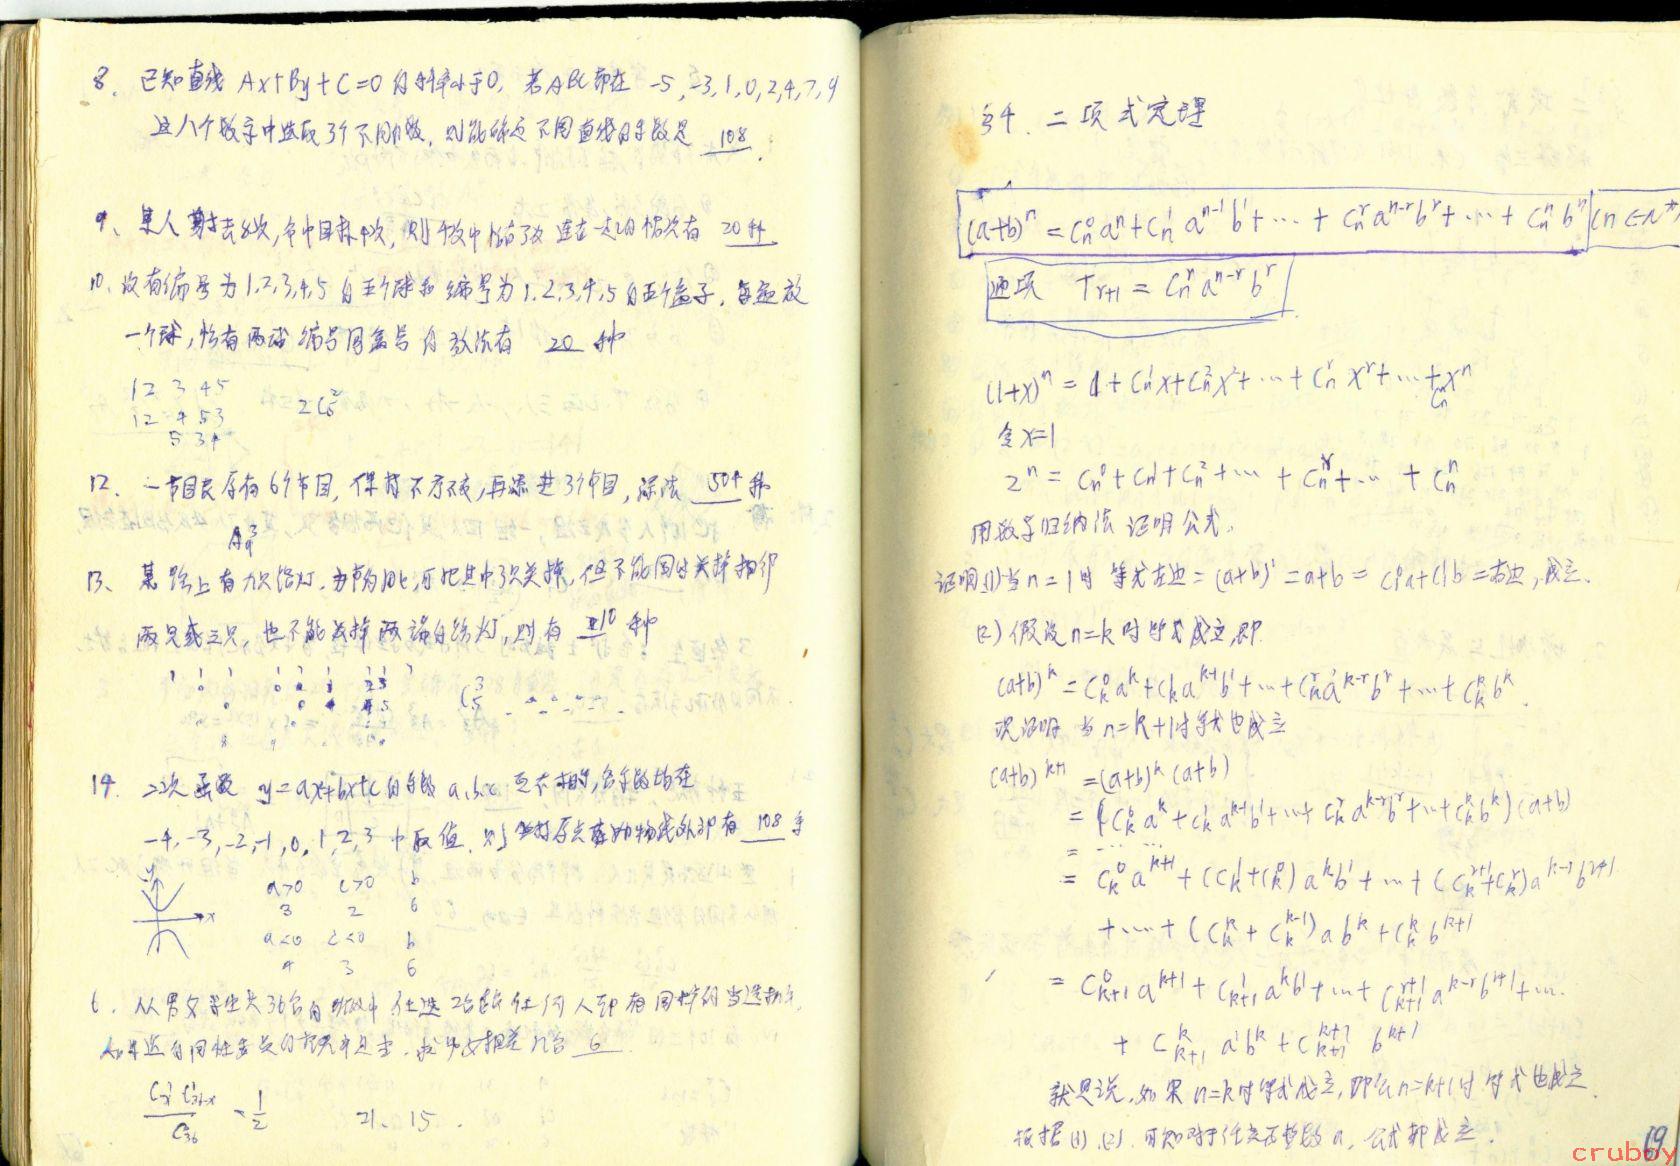 8. 已知直线 Ax+By+C=0 的斜率小于0, 若ABC都在 -5,-3,1,0,2,4,7,9
这八个数字中选取3个不同的数, 则能确定不同直线的条数是 108.
9、某人射击8次,命中目标4次,则4次中恰有3次连在一起的情况有 20 种
10. 设有编号为1,2,3,4,5的五个球和编号为1,2,3,4,5的五个盒子, 每盒放
一个球,恰有两球编号同盒号的放法有 20 种
1 2 3 4 5
1 2 4 5 3
5 3 4
2C₅²
12. 一节目表原有6个节目, 保持次序不变,再添进3个节目, 添法 504 种
A₉³
13、某路上有九只路灯. 为节约用电,可把其中3只关掉, 但不能同时关掉相邻
两只或三只, 也不能关掉两端的路灯, 则有 10 种
C₅³
14. 二次函数 y=ax²+bx+c 的系数 a,b,c 互不相等,各系数均在
-4,-3,-2,-1,0,1,2,3 中取值, 则 原点在抛物线 有 108 条
y
x
a>0 c>0 b
3 2 6
a<0 c<0 b
4 3 6
6. 从男女学生共36名的班级中 任选2名 任何人都有同样的当选机会,
选的同性 求男女相差几名 6.
= 1/2
21. 15.
§4. 二项式定理
(a+b)ⁿ = Cₙ⁰aⁿ + Cₙ¹aⁿ⁻¹b¹ + … + Cₙʳaⁿ⁻ʳbʳ + … + Cₙⁿbⁿ (n∈N⁺
通项 Tᵣ₊₁ = Cₙʳaⁿ⁻ʳbʳ
(1+x)ⁿ = 1 + Cₙ¹x + Cₙ²x² + … + Cₙʳxʳ + … + Cₙⁿxⁿ
令x=1
2ⁿ = Cₙ⁰ + Cₙ¹ + Cₙ² + … + Cₙʳ + … + Cₙⁿ
用数学归纳法证明公式.
证明(1)当n=1时 等式左边=(a+b)¹=a+b=C₁⁰a+C₁¹b=右边,成立.
(2)假设n=k时等式成立,即
(a+b)ᵏ = Cₖ⁰aᵏ + Cₖ¹aᵏ⁻¹b¹ + … + Cₖʳaᵏ⁻ʳbʳ + … + Cₖᵏbᵏ.
现证明 当n=k+1时等式也成立
(a+b)ᵏ⁺¹ = (a+b)ᵏ(a+b)
= (Cₖ⁰aᵏ + Cₖ¹aᵏ⁻¹b¹ + … + Cₖʳaᵏ⁻ʳbʳ + … + Cₖᵏbᵏ)(a+b)
= … …
= Cₖ⁰aᵏ⁺¹ + (Cₖ¹+Cₖ⁰)aᵏb¹ + … + (Cₖʳ⁺¹+Cₖʳ)aᵏ⁻ʳbʳ⁺¹
+ … + (Cₖᵏ+Cₖᵏ⁻¹)abᵏ + Cₖᵏbᵏ⁺¹
= Cₖ₊₁⁰aᵏ⁺¹ + Cₖ₊₁¹aᵏb¹ + … + Cₖ₊₁ʳ⁺¹aᵏ⁻ʳbʳ⁺¹ + …
+ Cₖ₊₁ᵏa¹bᵏ + Cₖ₊₁ᵏ⁺¹bᵏ⁺¹
就是说,如果n=k时等式成立,那么n=k+1时等式也成立.
根据(1).(2).可知对于任意正整数n, 公式都成立.
69
cruboy